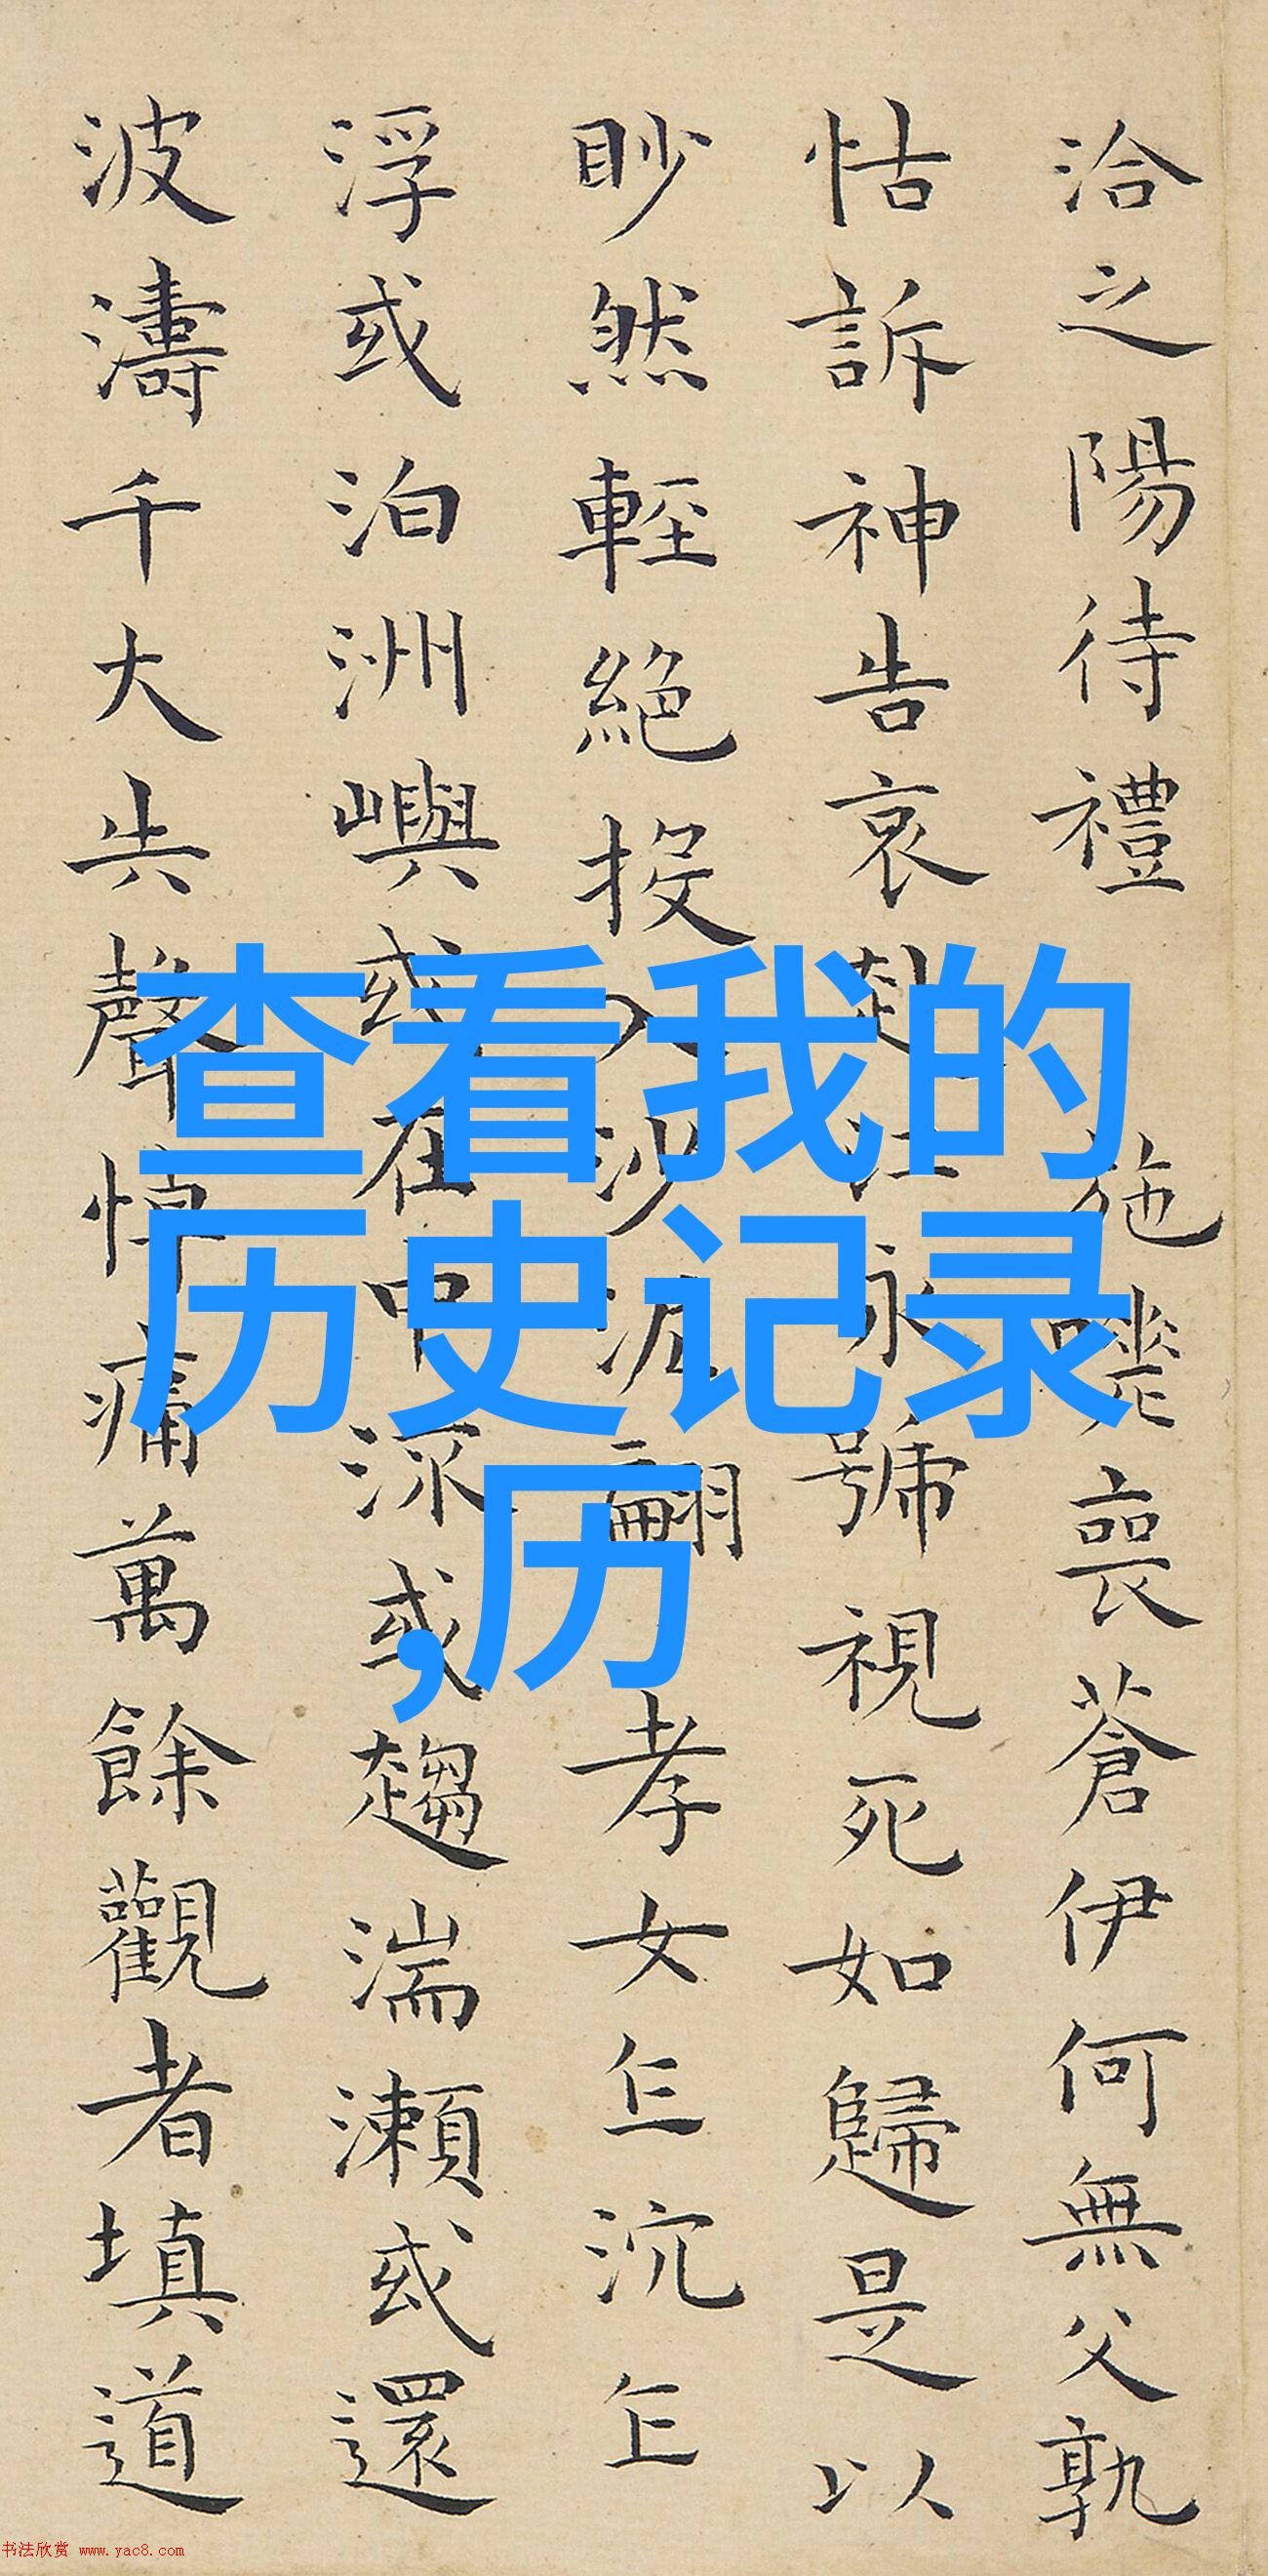 洽之陽待禮施嗟喪蒼伊何無父孰
怙訴神告哀赴江永號視死如歸是以
眇然輕絕投入沙泥翩孝女乍沉乍
浮或泊洲嶼或在中流或趨湍瀨或還
波濤千大失聲悼痛萬餘觀者填道
查看我的
历史记录
,历
书法欣赏 www.yac8.com